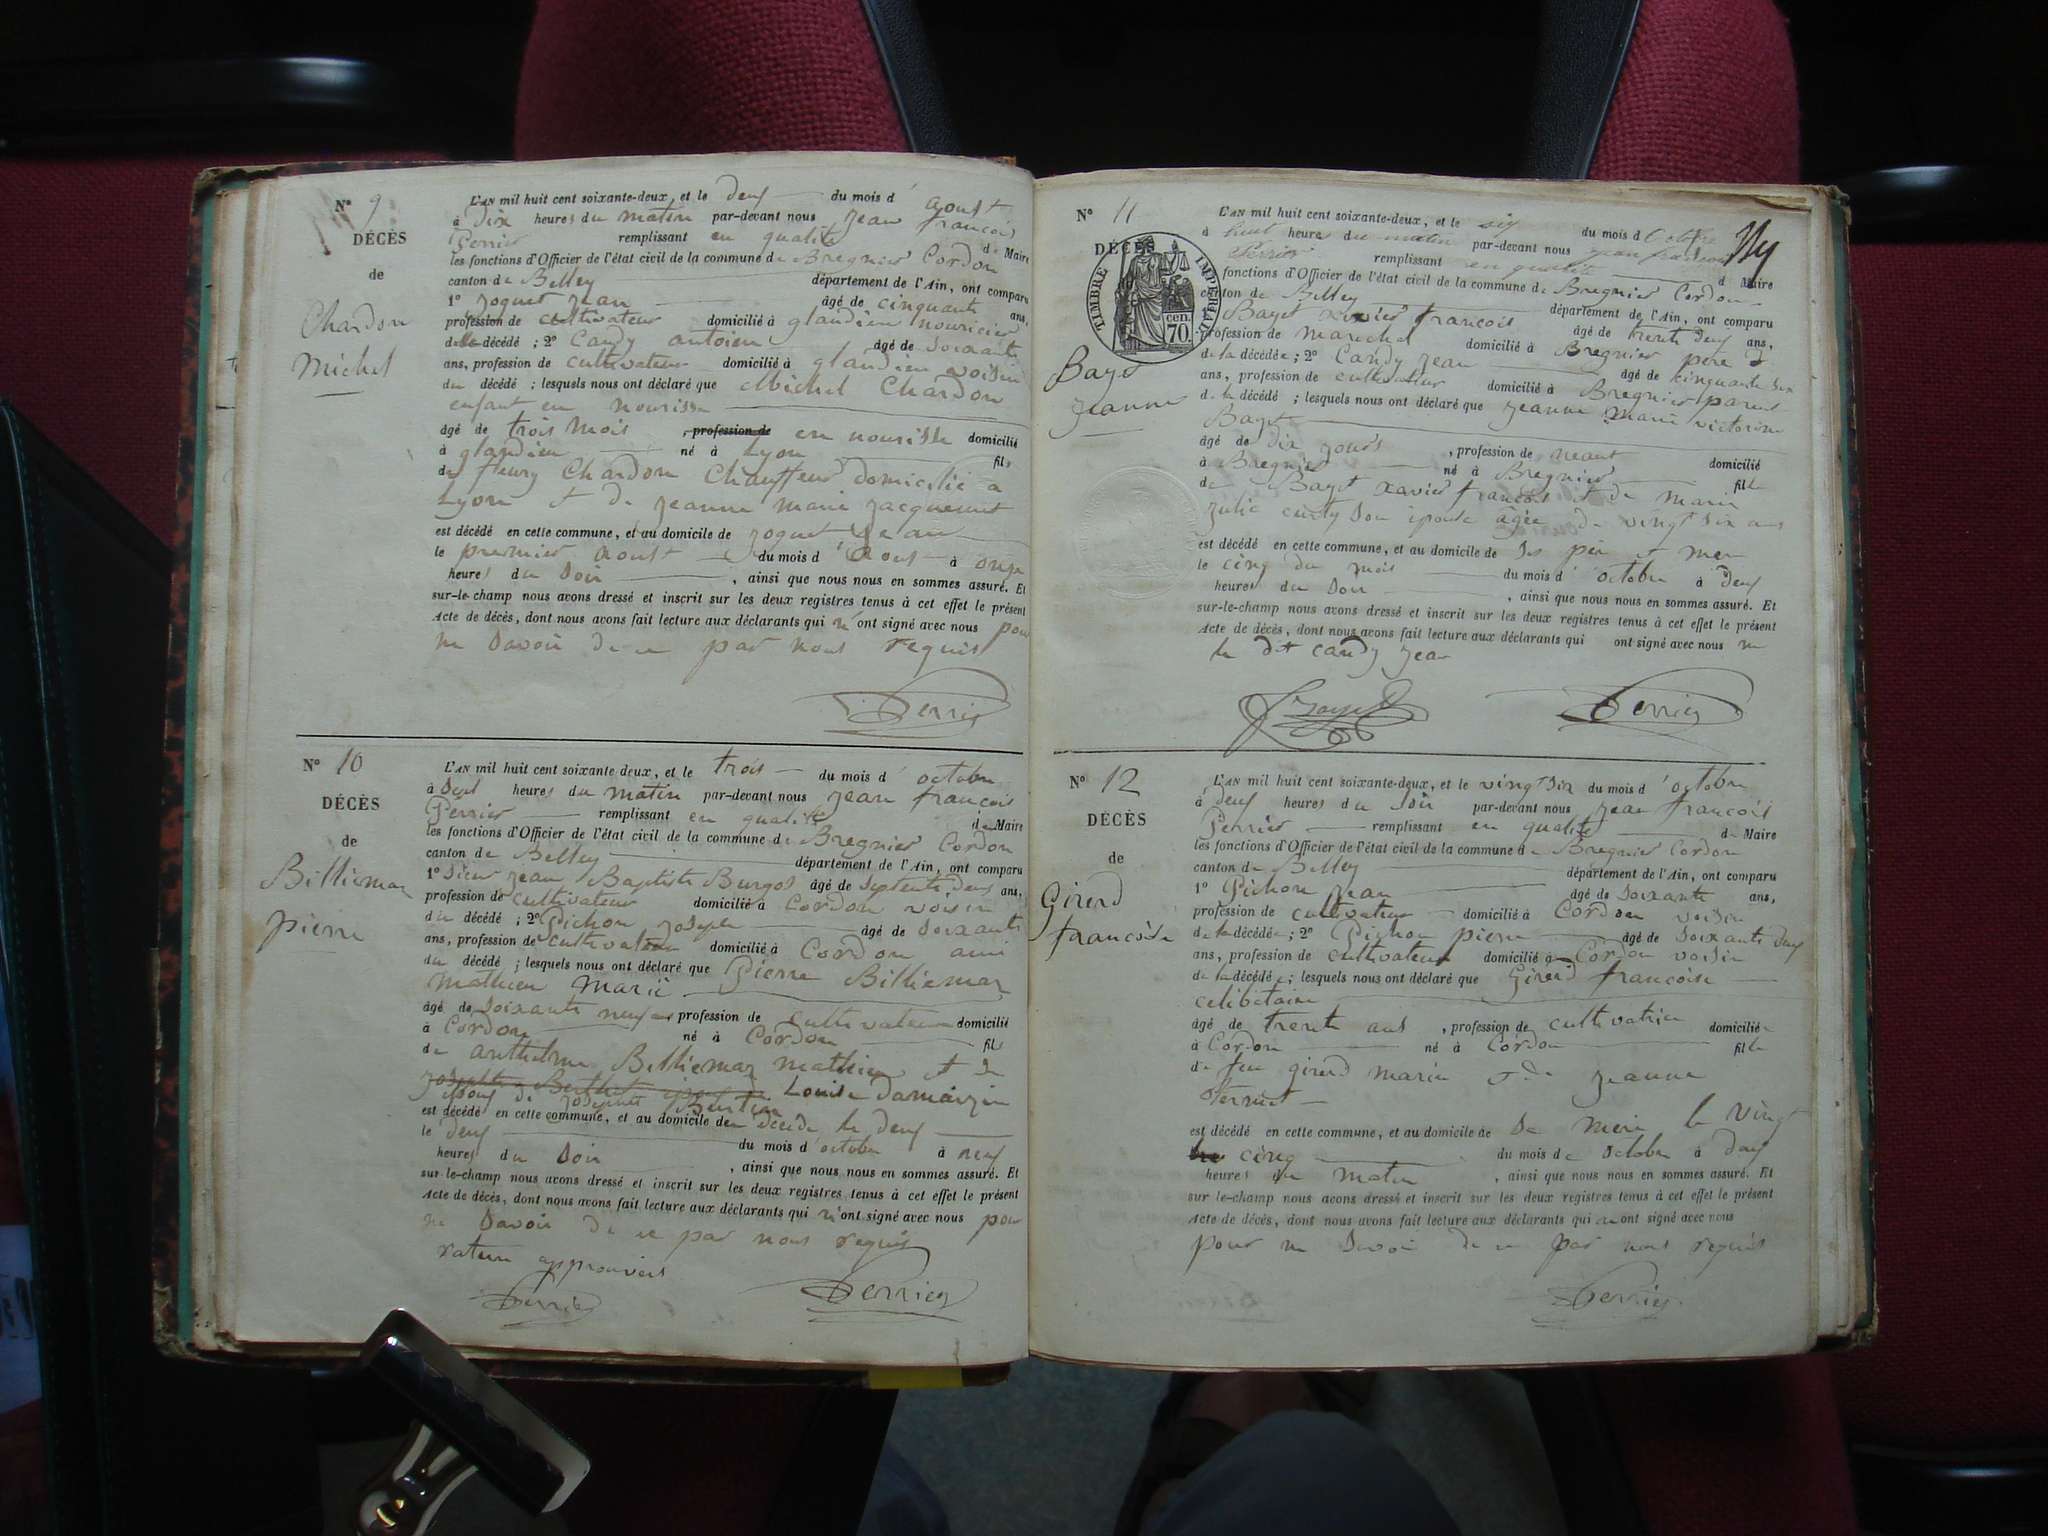 N° 9
DÉCÈS
de
Chardon
Michel
L'AN mil huit cent soixante-deux, et le deux du mois d'aoust
à dix heures du matin par-devant nous jean francois
Perrier remplissant en qualité de Maire
les fonctions d'Officier de l'état civil de la commune de Bregnier Cordon
canton de Belley département de l'Ain, ont comparu
1° joguet jean âgé de cinquante ans,
profession de cultivateur domicilié à glandieu nouricier
de le décédé ; 2° Candy antoien âgé de soixante
ans, profession de cultivateur domicilié à glandieu voisin
du décédé ; lesquels nous ont déclaré que Michel Chardon
enfant en nourisse
âgé de trois mois , profession de en nourisse domicilié
à glandieu né à Lyon fils
de fleury Chardon Chauffeur domicilié a
Lyon et de jeanne marie jacquemet
est décédé en cette commune, et au domicile de joguet jean
le premier aoust du mois d'Aoust à onze
heures du soir , ainsi que nous nous en sommes assuré. Et
sur-le-champ nous avons dressé et inscrit sur les deux registres tenus à cet effet le présent
Acte de décès, dont nous avons fait lecture aux déclarants qui n'ont signé avec nous pour
ne savoir de ce par nous requis
Perrier
N° 10
DÉCÈS
de
Billiemaz
pierre
L'AN mil huit cent soixante deux, et le trois du mois d'octobre
à sept heures du matin par-devant nous jean francois
Perrier remplissant en qualité de Maire
les fonctions d'Officier de l'état civil de la commune de Bregnier Cordon
canton de Belley département de l'Ain, ont comparu
1° sieur jean Baptiste Burgos âgé de septente deux ans,
profession de cultivateur domicilié à Cordon voisin
du décédé ; 2° Pichon joseph âgé de soixante
ans, profession de cultivateur domicilié à Cordon ami
du décédé ; lesquels nous ont déclaré que Pierre Billiemaz
mathieu Marié
âgé de soixante neuf ans profession de cultivateur domicilié
à Cordon né à Cordon fils
de anthelme Billiemaz mathieu et de
Louise damaizin
epoux de
est décédé en cette commune, et au domicile de decede le deux
le deux du mois d'octobre à neuf
heures du soir , ainsi que nous nous en sommes assuré. Et
sur-le-champ nous avons dressé et inscrit sur les deux registres tenus à cet effet le présent
Acte de décès, dont nous avons fait lecture aux déclarants qui n'ont signé avec nous pour
ne savoir de ce par nous requis
rature approuvers
Perrier Perrier
N° 11
DÉCÈS
TIMBRE IMPERIAL
cen. 70.
Bayet
jeanne
L'AN mil huit cent soixante-deux, et le six du mois d'Octobre
à huit heures du matin par-devant nous jean francois
Perrier remplissant en qualité d Maire
fonctions d'Officier de l'état civil de la commune de Bregnier Cordon
canton de Belley département de l'Ain, ont comparu
Bayet xavier francois âgé de trente deux ans,
profession de marechal domicilié à Bregnier pere d
de la décédée ; 2° Candy jean âgé de cinquante six
ans, profession de cultivateur domicilié à Bregnier parent
de la décédé ; lesquels nous ont déclaré que jeanne marie victorine
Bayet
âgé de dix jours , profession de neant domicilié
à Bregnier né à Bregnier fille
de Bayet xavier francois et de marie
julie curty son epouse âgée de vingt six ans
est décédé en cette commune, et au domicile de ses père et mere
le cinq du mois du mois d'octobre à deux
heures du soir , ainsi que nous nous en sommes assuré. Et
sur-le-champ nous avons dressé et inscrit sur les deux registres tenus à cet effet le présent
Acte de décès, dont nous avons fait lecture aux déclarants qui ont signé avec nous
le dit candy jean
Bayet Perrier
N° 12
DÉCÈS
de
Girerd
francoise
L'AN mil huit cent soixante-deux, et le vingt six du mois d'octobre
à deux heures du soir par-devant nous jean francois
Perrier remplissant en qualité de Maire
les fonctions d'Officier de l'état civil de la commune de Bregnier Cordon
canton de Belley département de l'Ain, ont comparu
1° Pichon jean âgé de soixante ans,
profession de cultivateur domicilié à Cordon voisin
de la décédée ; 2° Pichon pierre âgé de soixante deux
ans, profession de cultivateur domicilié à Cordon voisin
de la décédée ; lesquels nous ont déclaré que Girerd francoise
celibetaire
âgé de trente ans , profession de cultivatrice domiciliée
à Cordon né à Cordon fille
de feu girerd marin et de jeanne
est décédé en cette commune, et au domicile de sa mere le vingt
cinq du mois de octobre à deux
heures du matin , ainsi que nous nous en sommes assuré. Et
sur le-champ nous avons dressé et inscrit sur les deux registres tenus à cet effet le présent
Acte de décès, dont nous avons fait lecture aux déclarants qui n ont signé avec nous
pour ne savoir de ce par nous requis
Perrier